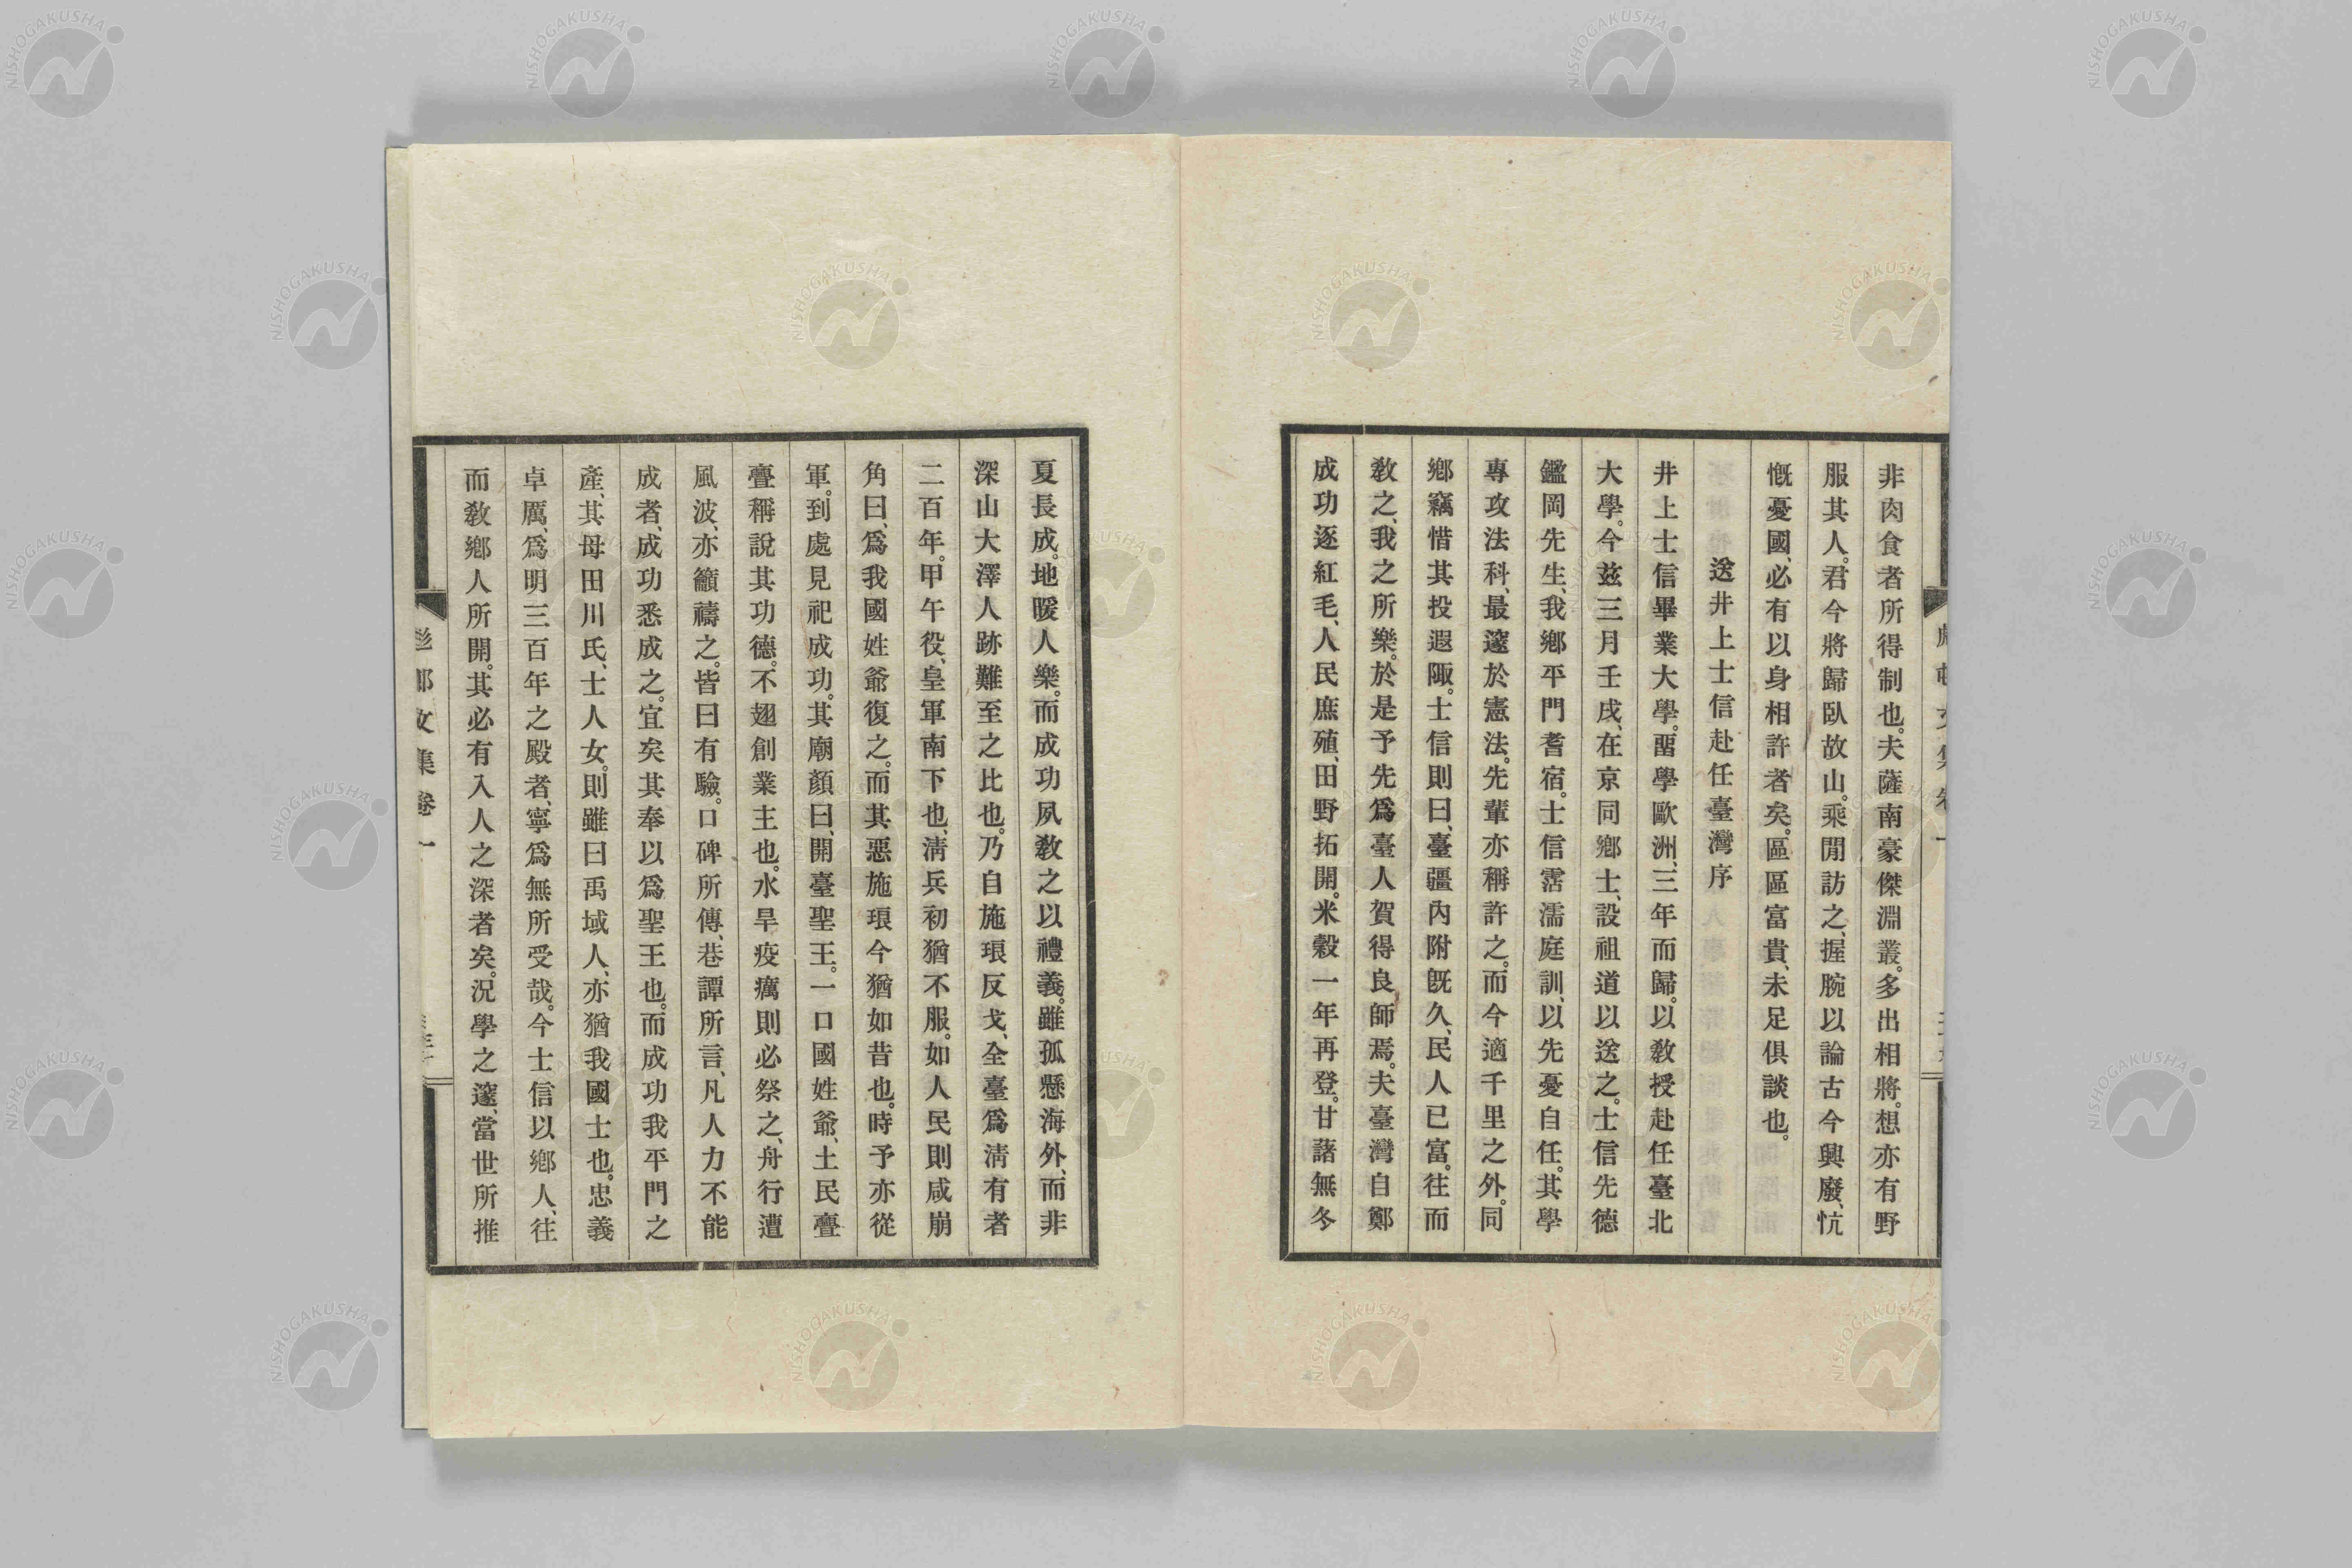 非肉食者所得制也。夫薩南豪傑淵叢。多出相將。想亦有野
服其人。君今將歸臥故山。乘閒訪之、握腕以論古今興廢、忼
慨憂國、必有以身相許者矣。區區富貴、未足俱談也。
送井上士信赴任臺灣序
井上士信畢業大學。畱學歐洲、三年而歸。以敎授赴任臺北
大學。今玆三月壬戌、在京同鄕士、設祖道以送之。士信先德
鑑岡先生、我鄕平門耆宿。士信霑濡庭訓、以先憂自任。其學
專攻法科、最邃於憲法。先輩亦稱許之。而今適千里之外。同
鄕竊惜其投遐陬。士信則曰、臺疆內附旣久、民人已富。往而
敎之、我之所樂。於是予先爲臺人賀得良師焉。夫臺灣自鄭
成功逐紅毛、人民庶殖、田野拓開。米穀一年再登。甘藷無冬
夏長成。地暖人樂。而成功夙敎之以禮義。雖孤懸海外、而非
深山大澤人跡難至之比也。乃自施琅反戈、全臺爲淸有者
二百年。甲午役、皇軍南下也、淸兵初猶不服。如人民則咸崩
角曰、爲我國姓爺復之。而其惡施琅今猶如昔也。時予亦從
軍。到處見祀成功。其廟顏曰、開臺聖王。一口國姓爺、土民亹
亹稱說其功德。不翅創業主也。水旱疫癘則必祭之、舟行遭
風波、亦籲禱之。皆曰有驗。口碑所傳、巷譚所言、凡人力不能
成者、成功悉成之。宜矣其奉以爲聖王也。而成功我平門之
產、其母田川氏、士人女。則雖曰禹域人、亦猶我國士也。忠義
卓厲、爲明三百年之殿者、寧爲無所受哉。今士信以鄕人、往
而敎鄕人所開。其必有入人之深者矣。況學之邃、當世所推
文集卷一